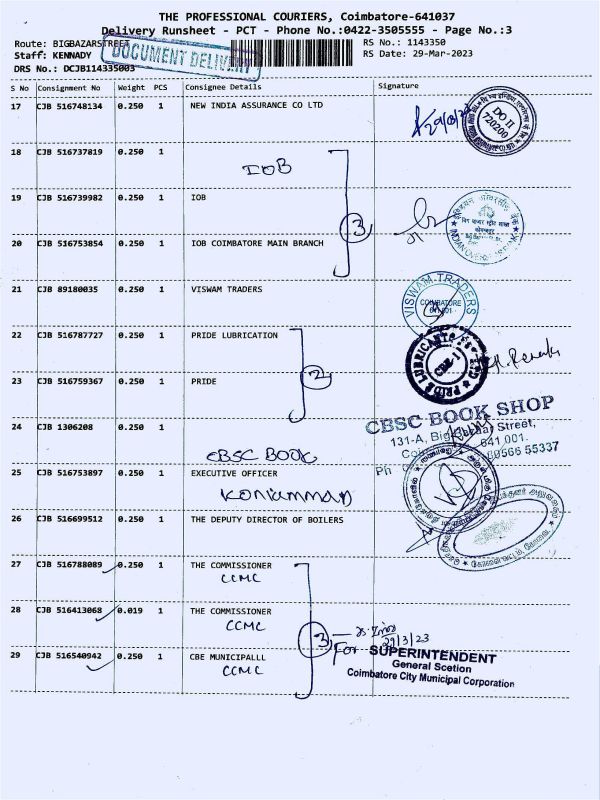 THE PROFESSIONAL COURIERS, Coimbatore-641037
Delivery Runsheet - PCT - Phone No.:0422-3505555 - Page No.:3
Route: BIGBAZARSTREET
RS No.: 1143350
Staff: KENNADY
DOCUMENT DELIVERY
RS Date: 29-Mar-2023
DRS No.: DCJB114335003
S No Consignment No Weight PCS Consignee Details Signature
17 CJB 516748134 0.250 1 NEW INDIA ASSURANCE CO LTD
DO II
720200
18 CJB 516737819 0.250 1
IOB
19 CJB 516739982 0.250 1 IOB
3
20 CJB 516753854 0.250 1 IOB COIMBATORE MAIN BRANCH
21 CJB 89180035 0.250 1 VISWAM TRADERS
VISWAM TRADERS
COIMBATORE
22 CJB 516787727 0.250 1 PRIDE LUBRICATION
PRIDE LUBRICANTS
CBE-1
2
23 CJB 516759367 0.250 1 PRIDE
24 CJB 1306208 0.250 1
CBSC BOOK
CBSC BOOK SHOP
131-A, Big Bazaar Street,
641 001.
Ph
25 CJB 516753897 0.250 1 EXECUTIVE OFFICER
KONIAMMAN
26 CJB 516699512 0.250 1 THE DEPUTY DIRECTOR OF BOILERS
27 CJB 516788089 0.250 1 THE COMMISSIONER
CCMC
28 CJB 516413068 0.019 1 THE COMMISSIONER
CCMC
3
29/3/23
29 CJB 516540942 0.250 1 CBE MUNICIPALLL
CCMC
For SUPERINTENDENT
General Scetion
Coimbatore City Municipal Corporation